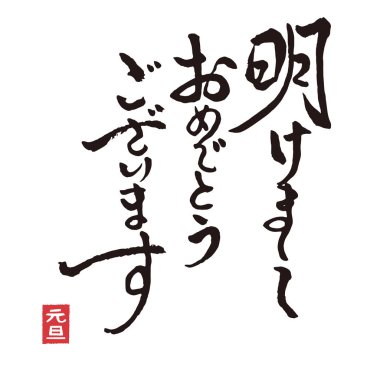 明けまして
おめでとう
ございます
元旦